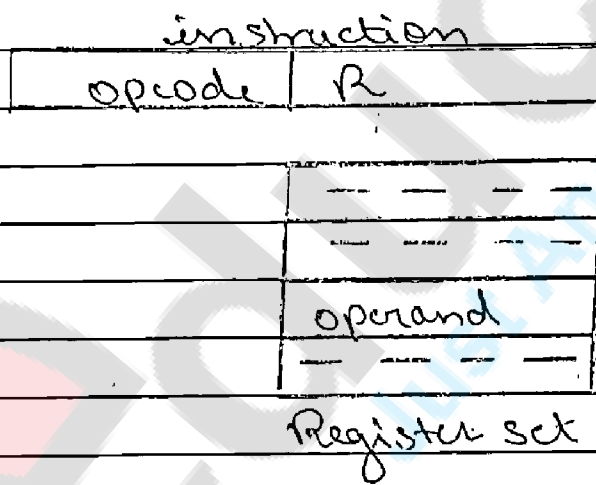 instruction
opcode R
operand
Register set